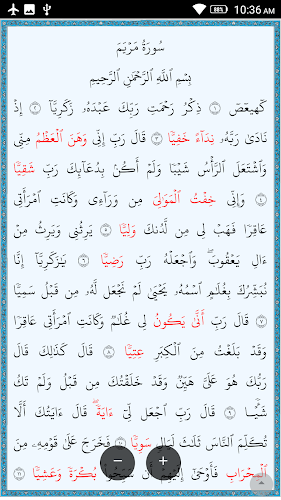 10:36 AM
88%
سُورَةُ مَرْيَمَ
بِسْمِ ٱللَّهِ ٱلرَّحْمَٰنِ ٱلرَّحِيمِ
كٓهيعٓصٓ ۝١ ذِكْرُ رَحْمَتِ رَبِّكَ عَبْدَهُۥ زَكَرِيَّآ ۝٢ إِذْ
نَادَىٰ رَبَّهُۥ نِدَآءً خَفِيًّا ۝٣ قَالَ رَبِّ إِنِّى وَهَنَ ٱلْعَظْمُ مِنِّى
وَٱشْتَعَلَ ٱلرَّأْسُ شَيْبًا وَلَمْ أَكُنۢ بِدُعَآئِكَ رَبِّ شَقِيًّا
۝٤ وَإِنِّى خِفْتُ ٱلْمَوَٰلِىَ مِن وَرَآءِى وَكَانَتِ ٱمْرَأَتِى
عَاقِرًا فَهَبْ لِى مِن لَّدُنكَ وَلِيًّا ۝٥ يَرِثُنِى وَيَرِثُ مِنْ
ءَالِ يَعْقُوبَ ۖ وَٱجْعَلْهُ رَبِّ رَضِيًّا ۝٦ يَٰزَكَرِيَّآ إِنَّا
نُبَشِّرُكَ بِغُلَٰمٍ ٱسْمُهُۥ يَحْيَىٰ لَمْ نَجْعَل لَّهُۥ مِن قَبْلُ سَمِيًّا
۝٧ قَالَ رَبِّ أَنَّىٰ يَكُونُ لِى غُلَٰمٌ وَكَانَتِ ٱمْرَأَتِى عَاقِرًا
وَقَدْ بَلَغْتُ مِنَ ٱلْكِبَرِ عِتِيًّا ۝٨ قَالَ كَذَٰلِكَ قَالَ
رَبُّكَ هُوَ عَلَىَّ هَيِّنٌ وَقَدْ خَلَقْتُكَ مِن قَبْلُ وَلَمْ تَكُ
شَيْـًٔا ۝٩ قَالَ رَبِّ ٱجْعَل لِّىٓ ءَايَةً ۚ قَالَ ءَايَتُكَ أَلَّا
تُكَلِّمَ ٱلنَّاسَ ثَلَٰثَ لَيَالٍ سَوِيًّا ۝١٠ فَخَرَجَ عَلَىٰ قَوْمِهِۦ مِنَ
ٱلْمِحْرَابِ فَأَوْحَىٰٓ إِلَيْهِمْ أَن سَبِّحُوا۟ بُكْرَةً وَعَشِيًّا ۝١١